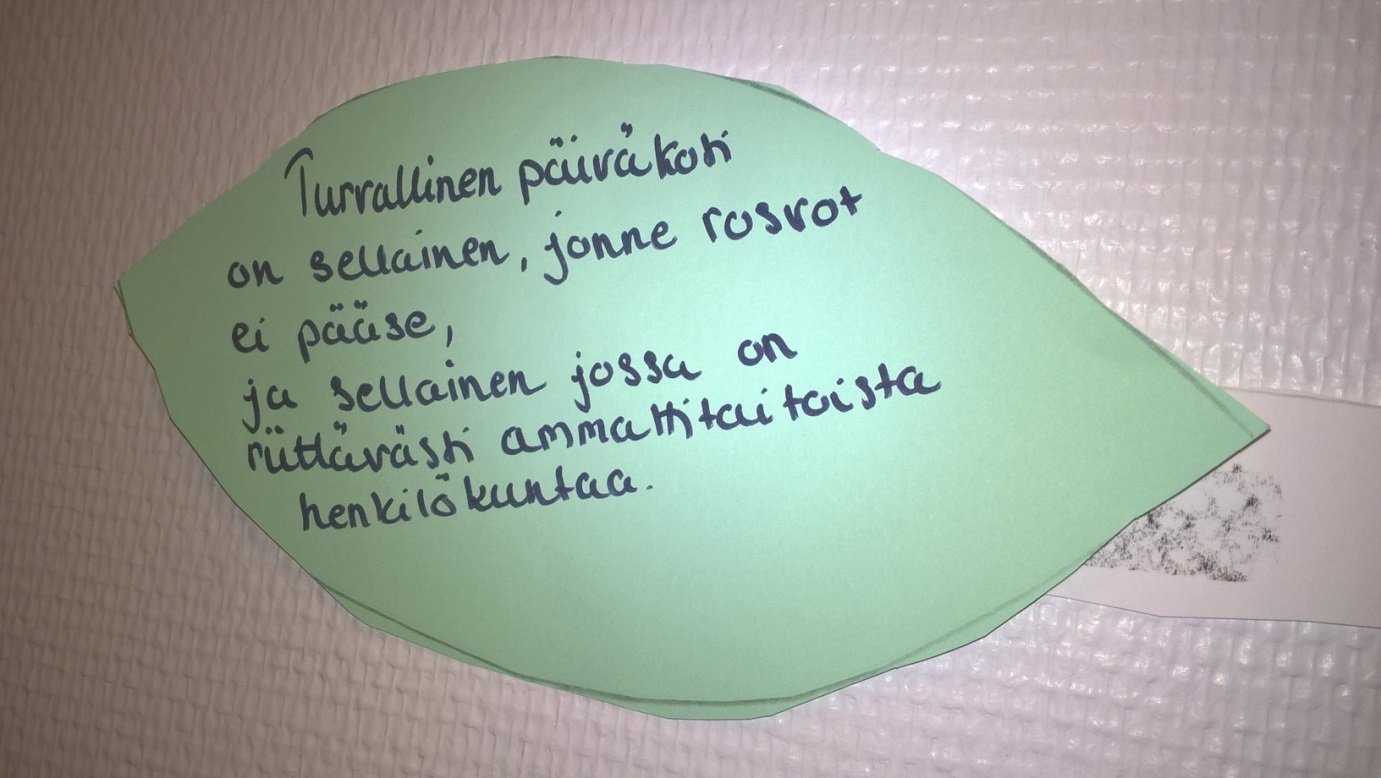 Turvallinen päiväkoti
on sellainen, jonne rosvot
ei pääse,
ja sellainen jossa on
riittävästi ammattitaitoista
henkilökuntaa.